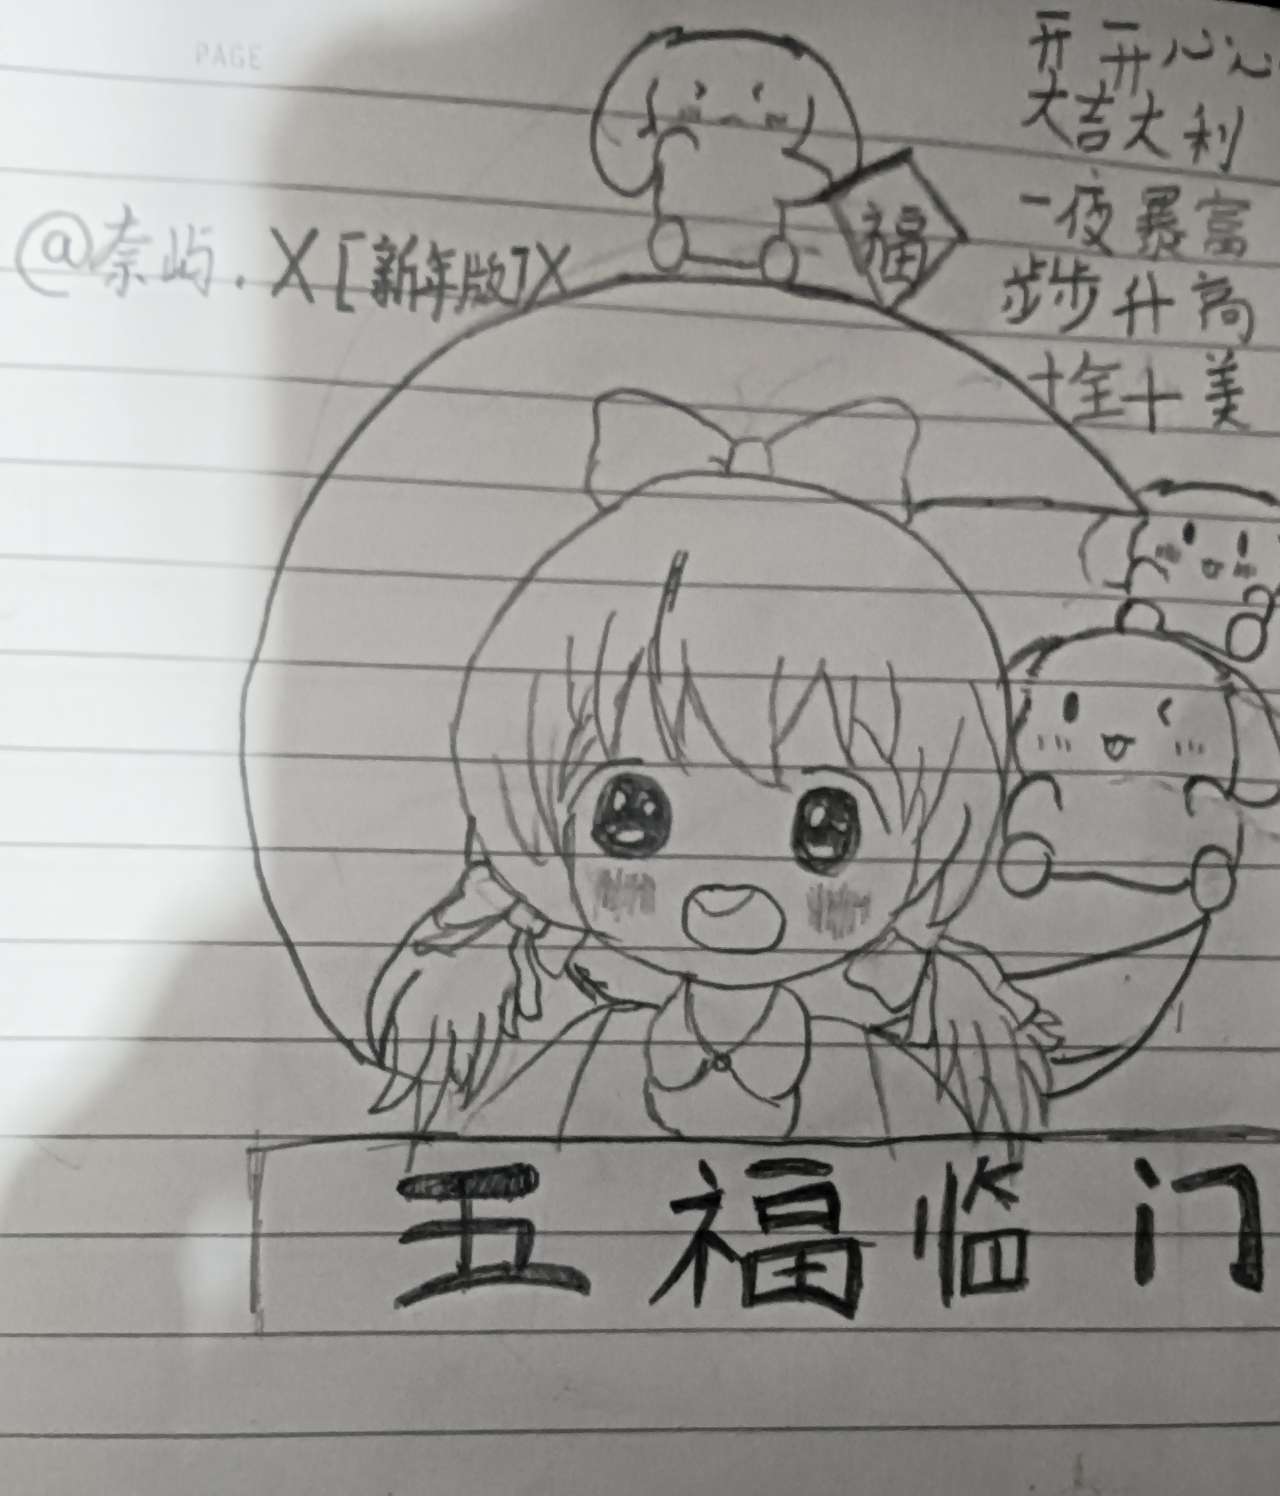 PAGE
开开心心
大吉大利
一夜暴富
步步升高
十全十美
福
@奈屿.X[新年版]X
五福临门